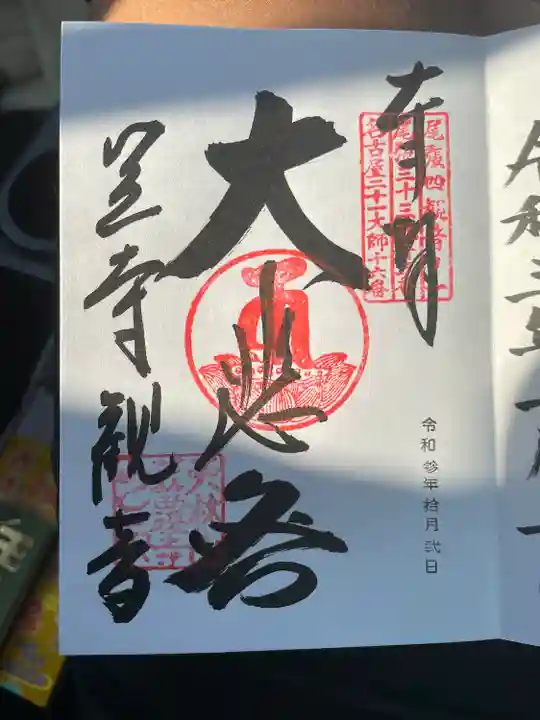 奉拝
尾張四観音
尾張三十三
名古屋二十一大師十六番
令和参年拾月弐日
大悲閣
笠寺観音
令和三年